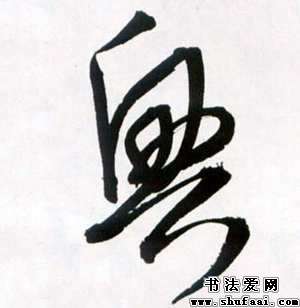 粤
书法爱网
www.shufaai.com